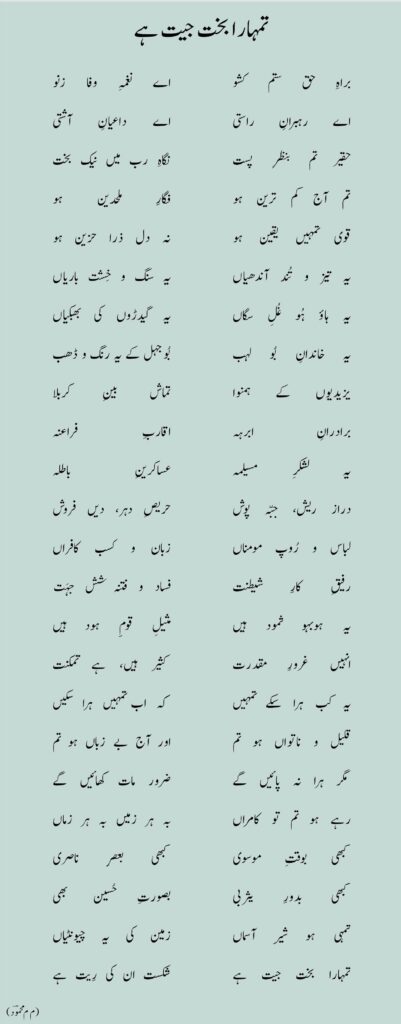 تمہارا بخت جیت ہے
براہِ حق ستم کشو اے نغمہِ وفا زنو
اے رہبرانِ راستی اے داعیانِ آشتی
حقیر تم بنظر پست نگاہِ رب میں نیک بخت
تم آج کم ترین ہو فگارِ ملحدین ہو
قوی تمہیں یقین ہو نہ دل ذرا حزین ہو
یہ تیز و تُند آندھیاں یہ سنگ و خِشت باریاں
یہ ہاؤ ہُو غُلِ سگاں یہ گیدڑوں کی بھبکیاں
یہ خاندانِ بُو لہب بُوجہل کے یہ رنگ و ڈھب
یزیدیوں کے ہمنوا تماش بینِ کربلا
برادرانِ ابرہہ اقاربِ فراعنہ
یہ لشکرِ مسیلمہ عساکرینِ باطلہ
دراز ریش، جبّہ پوش حریصِ دہر، دیں فروش
لباس و رُوپ مومناں زبان و کسب کافراں
رفیقِ کارِ شیطنت فساد و فتنہ شش جہَت
یہ ہوبہو ثمود ہیں مثیلِ قومِ ہود ہیں
انہیں غرورِ مقدرت کثیر ہیں، ہے تمکنت
یہ کب ہرا سکے تمہیں کہ اب تمہیں ہرا سکیں
قلیل و ناتواں ہو تم اور آج بے زباں ہو تم
مگر ہرا نہ پائیں گے ضرور مات کھائیں گے
رہے ہو تم تو کامراں بہ ہر زمیں بہ ہر زماں
کبھی بوقتِ موسوی کبھی بعصر ناصری
کبھی بدورِ یثربی بصورتِ حُسین بھی
تمہی ہو شیرِ آسماں زمین کی یہ چیونٹیاں
تمہارا بخت جیت ہے شکست ان کی رِیت ہے
(م م محمودؔ)